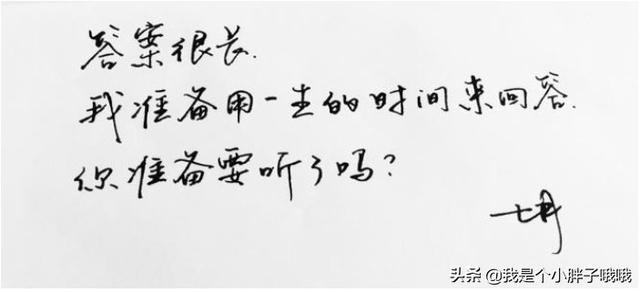 答案很长.
我准备用一生的时间来回答.
你准备要听了吗?
头条 @我是个小胖子哦哦